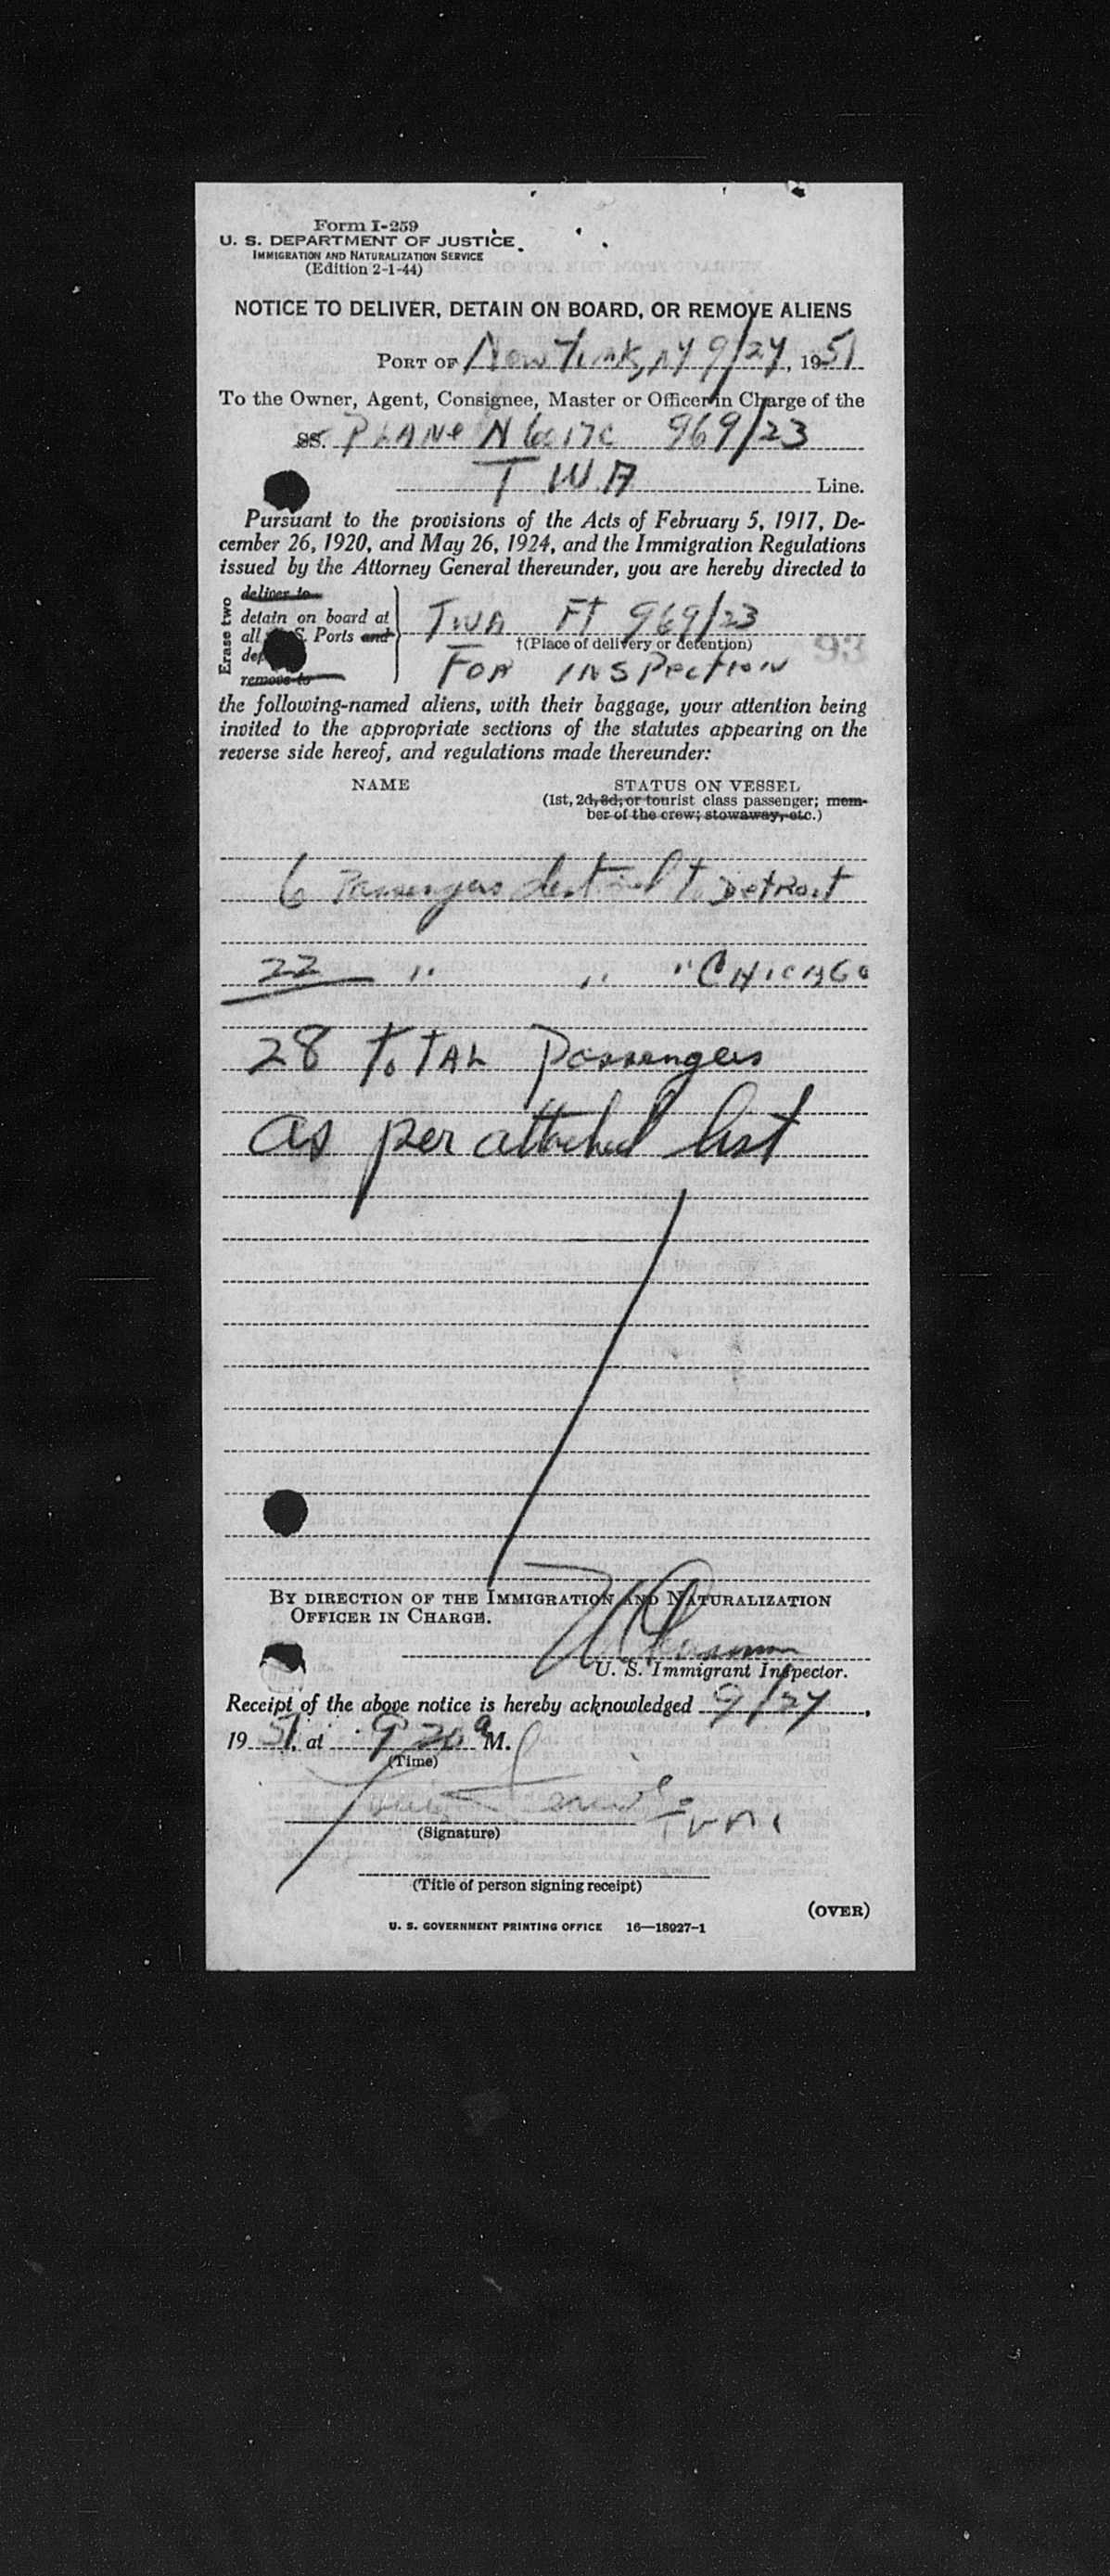 Form I-259
U. S. DEPARTMENT OF JUSTICE
IMMIGRATION AND NATURALIZATION SERVICE
(Edition 2-1-44)
NOTICE TO DELIVER, DETAIN ON BOARD, OR REMOVE ALIENS
PORT OF New York, NY 9/24, 1951
To the Owner, Agent, Consignee, Master or Officer in Charge of the
SS. PLANe N 6017C 969/23
T.W.A Line.
Pursuant to the provisions of the Acts of February 5, 1917, De-
cember 26, 1920, and May 26, 1924, and the Immigration Regulations
issued by the Attorney General thereunder, you are hereby directed to
Erase two
deliver to
detain on board at
all U.S. Ports and
remove to
TWA Ft 969/23
†(Place of delivery or detention)
FOR INSPectION
93
the following-named aliens, with their baggage, your attention being
invited to the appropriate sections of the statutes appearing on the
reverse side hereof, and regulations made thereunder:
NAME STATUS ON VESSEL
(1st, 2d, 3d, or tourist class passenger; mem-
ber of the crew; stowaway, etc.)
6 Passengers destined to Detroit
22 " " " CHICAGO
28 TOTAL Passengers
as per attached list
BY DIRECTION OF THE IMMIGRATION AND NATURALIZATION
OFFICER IN CHARGE.
U. S. Immigrant Inspector.
Receipt of the above notice is hereby acknowledged 9/24,
1951, at 9 20 a M.
(Time)
(Signature)
(Title of person signing receipt)
(OVER)
U. S. GOVERNMENT PRINTING OFFICE 16—18927-1